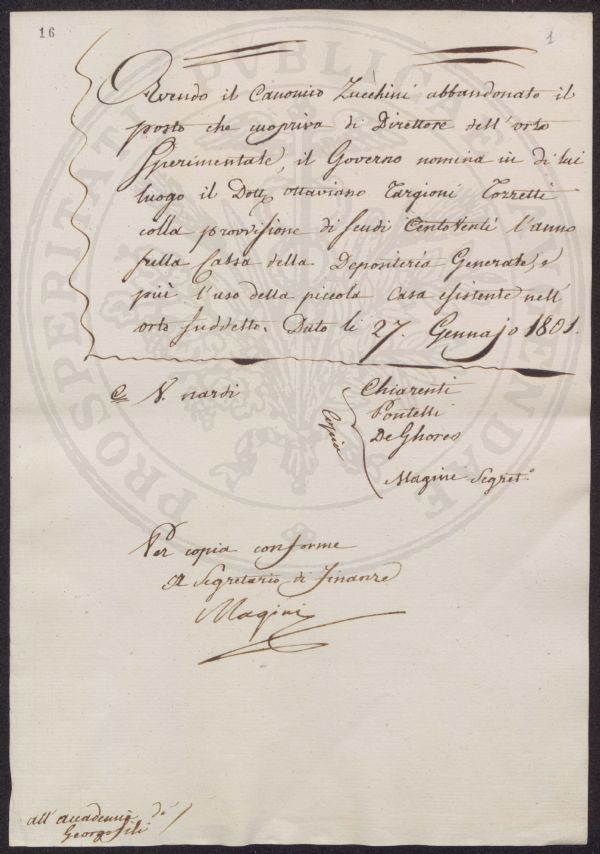 16
1
Avendo il Canonico Zucchini abbandonato il
posto che cuopriva di Direttore dell'orto
Sperimentale, il Governo nomina in di lui
luogo il Dott. ottaviano Targioni Tozzetti
colla provvisione di scudi Centoventi l'anno
sulla Cassa della Depositeria Generale, e
più l'uso della piccola casa esistente nell'
orto suddetto. Dato li 27. Gennajo 1801.
V. nardi
Copia
Chiarenti
Pontelli
DeGhores
Magini Segret.o
Per copia conforme
Il Segretario di Finanze
Magini
all'accademia de
Georgofili
PROSPERITATI PUBLICAE AUGENDAE